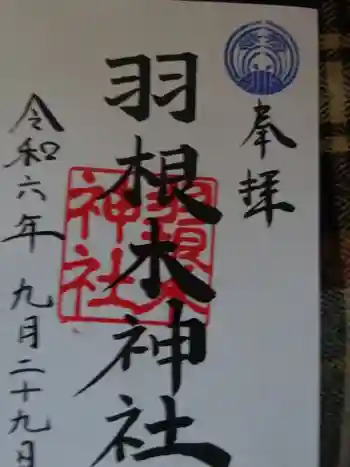 奉拝
羽根木神社
羽根木
神社
令和六年 九月二十九日